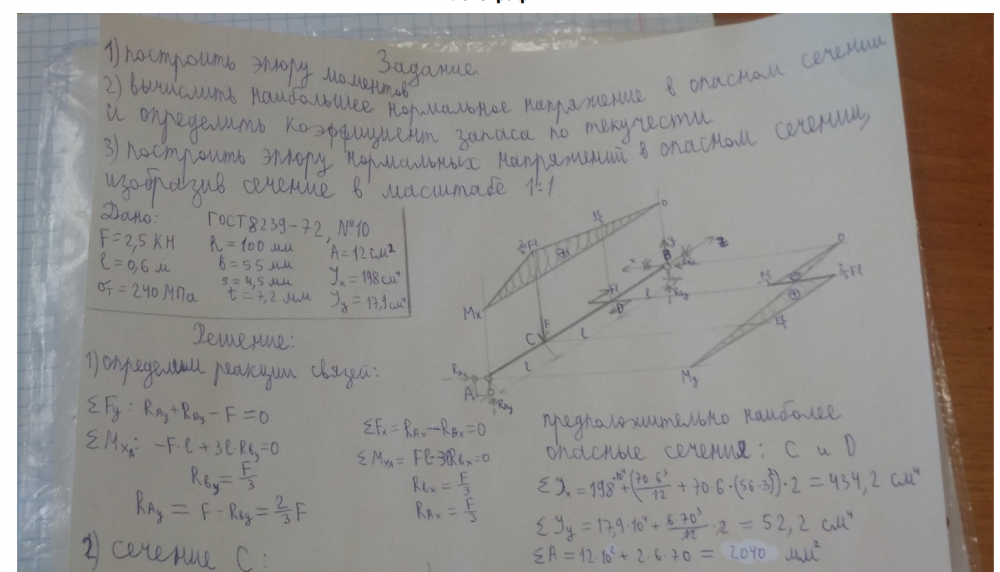 Задание
1) построить эпюру моментов
2) вычислить наибольшее нормальное напряжение в опасном сечении
и определить коэффициент запаса по текучести
3) построить эпюру нормальных напряжений в опасном сечении,
изобразив сечение в масштабе 1:1.
Дано: ГОСТ 8239-72, №10
F = 2,5 кН h = 100 мм A = 12 см²
l = 0,6 м b = 55 мм Jx = 198 см⁴
σт = 240 МПа s = 4,5 мм Jy = 17,9 см⁴
t = 7,2 мм
Mx
Fl
C
F
l
l
l
D
A
My
Решение:
1) определим реакции связей:
ΣFy: RAy + RBy - F = 0
ΣMxA: -F·l + 3l·RBy = 0
RBy = F/3
RAy = F - RBy = 2/3 F
ΣFx = RAx - RBx = 0
ΣMyA = Fl - 3lRBx = 0
RBx = F/3
RAx = F/3
предположительно наиболее
опасные сечения: C и D
ΣJx = 198·10⁴ + (70·6³/12 + 70·6·(56-3)²)·2 = 434,2 см⁴
ΣJy = 17,9·10⁴ + 6·70³/12 ·2 = 52,2 см⁴
ΣA = 12·10² + 2·6·70 = 2040 мм²
2) сечение C: